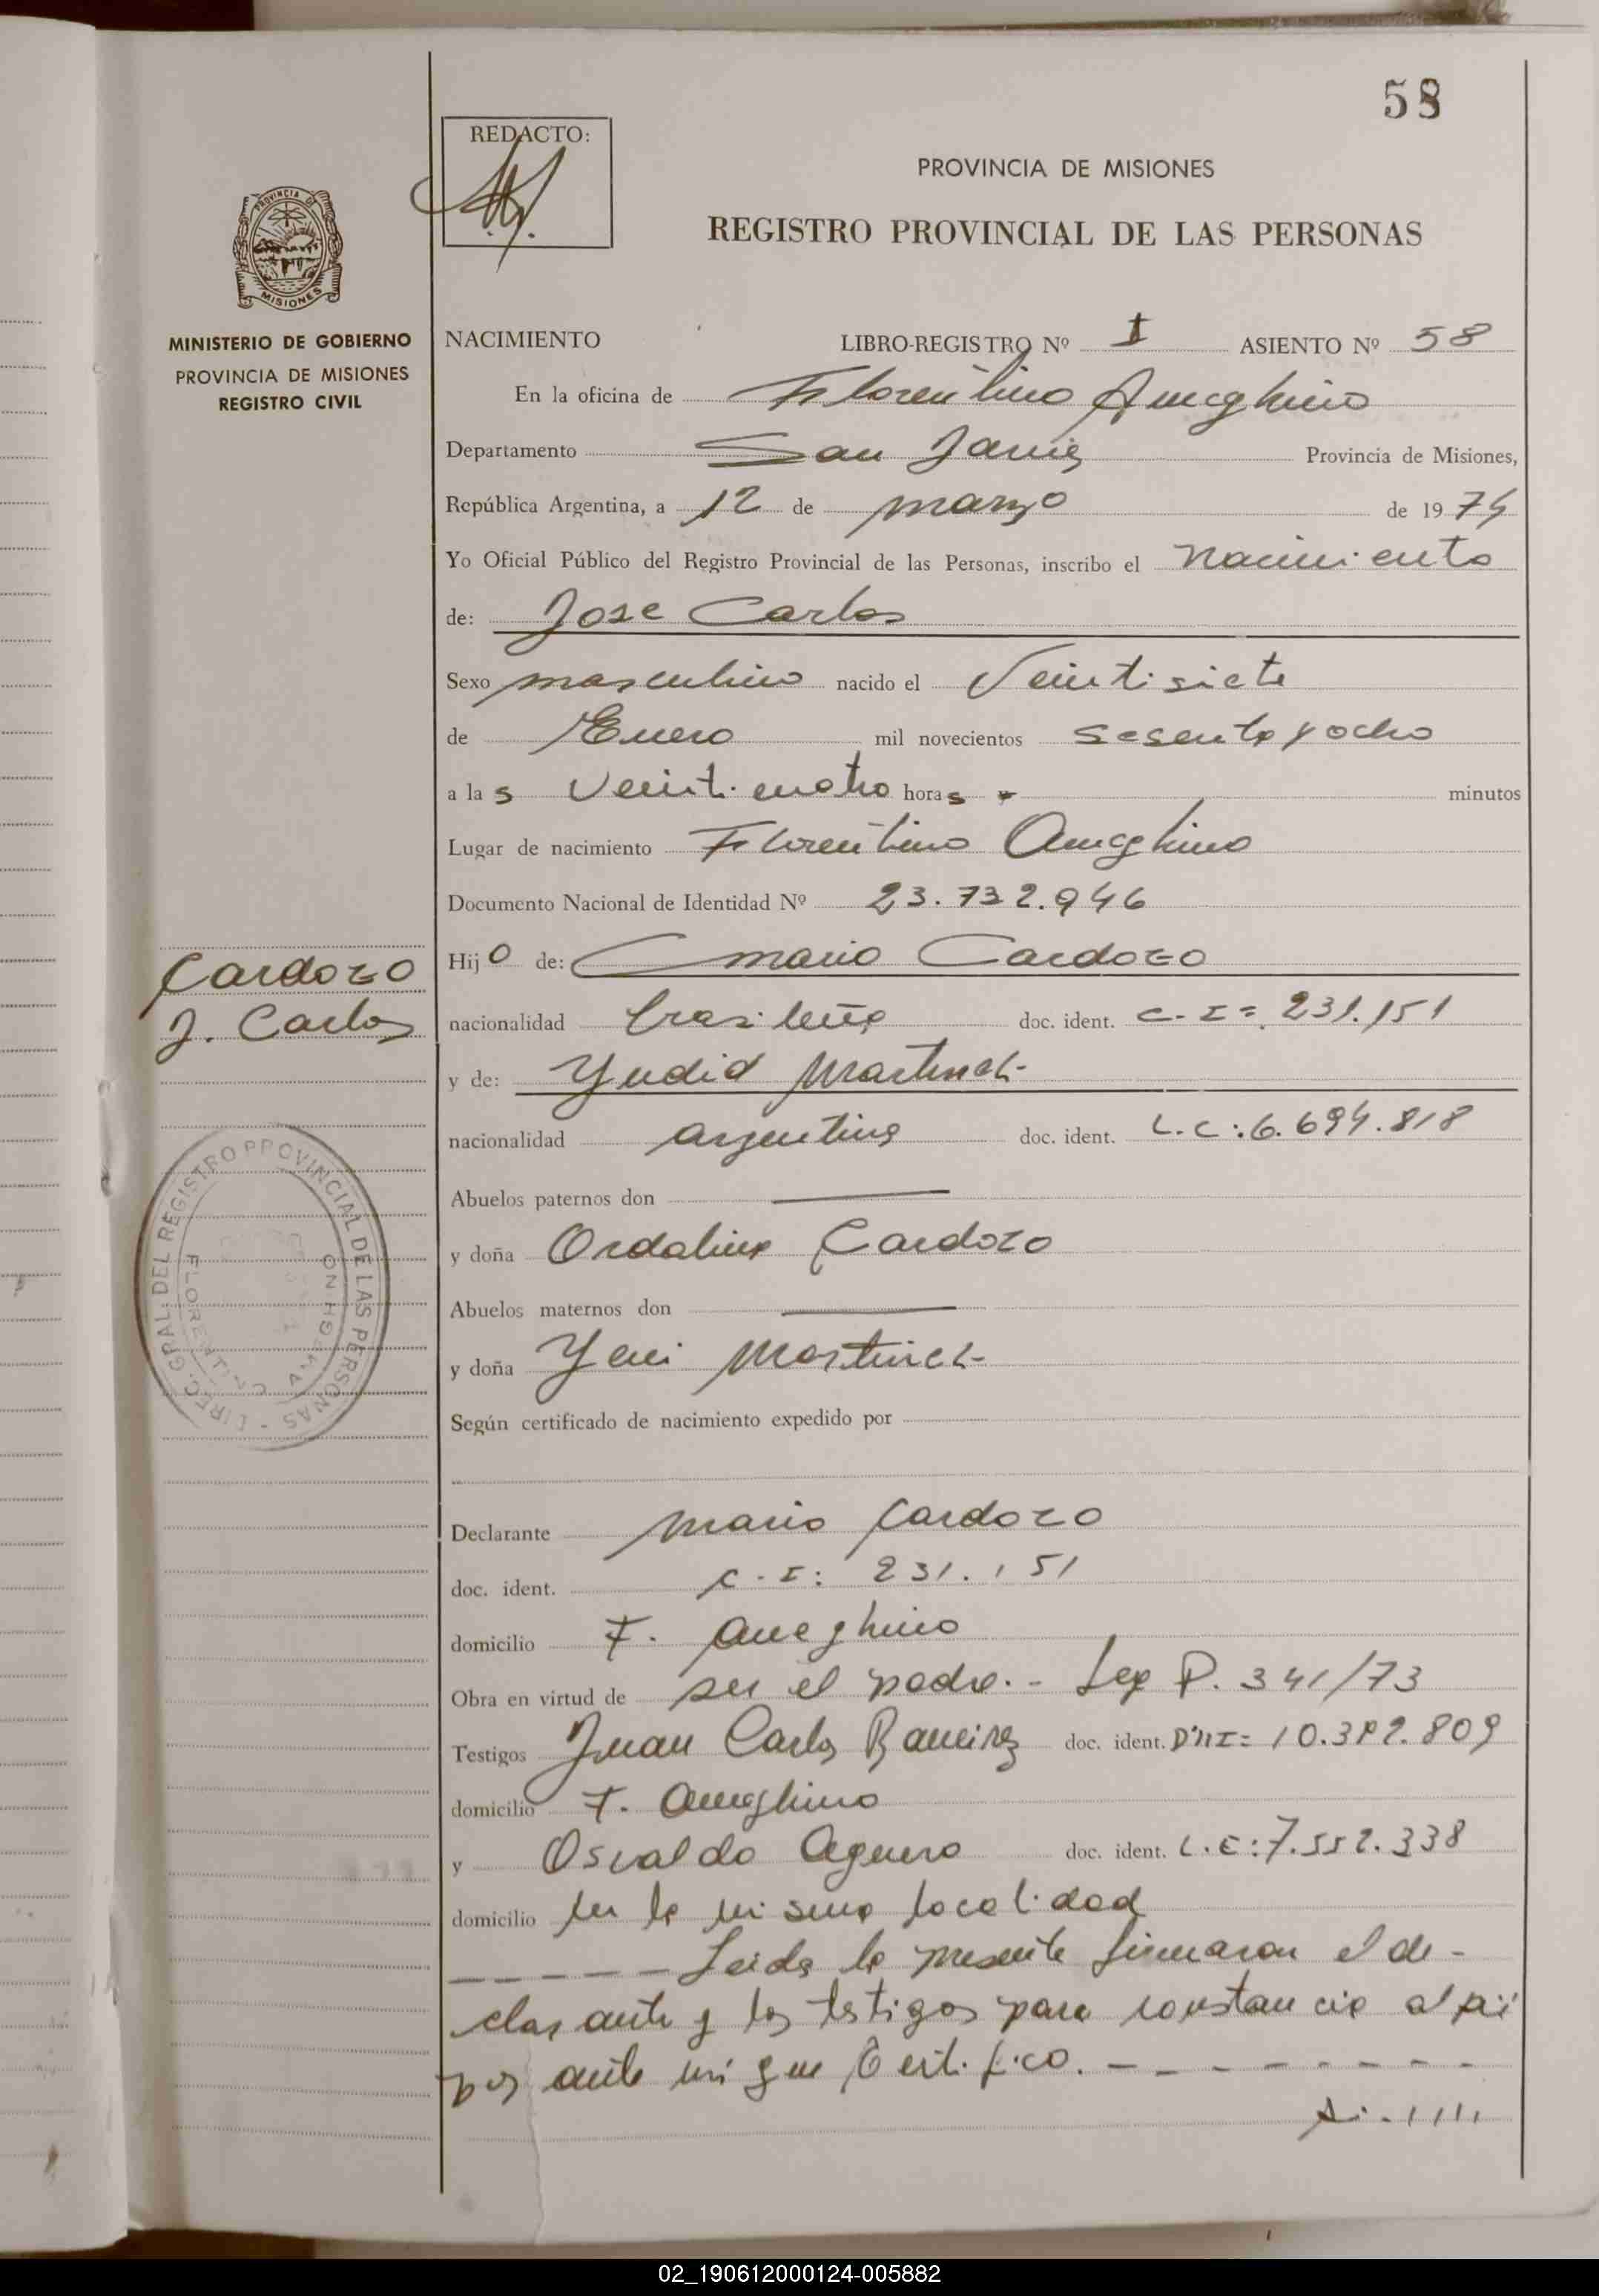 58
REDACTO:
PROVINCIA DE MISIONES
REGISTRO PROVINCIAL DE LAS PERSONAS
PROVINCIA DE
MISIONES
MINISTERIO DE GOBIERNO
PROVINCIA DE MISIONES
REGISTRO CIVIL
NACIMIENTO LIBRO-REGISTRO Nº I ASIENTO Nº 58
En la oficina de Florentino Ameghino
Departamento San Javier Provincia de Misiones,
República Argentina, a 12 de marzo de 1974
Yo Oficial Público del Registro Provincial de las Personas, inscribo el Nacimiento
de: Jose Carlos
Sexo masculino nacido el Veintisiete
de Enero mil novecientos sesenta y ocho
a las veinticuatro horas minutos
Lugar de nacimiento Florentino Ameghino
Documento Nacional de Identidad Nº 23.732.946
Cardozo
J. Carlos
Hijo de: Mario Cardozo
nacionalidad brasileña doc. ident. C.I= 231.151
y de: Yudid Martinez
nacionalidad argentina doc. ident. L.C:6.694.818
Abuelos paternos don
y doña Ordalina Cardozo
Abuelos maternos don
y doña Yeni Martinez
Según certificado de nacimiento expedido por
DIREC. GRAL. DEL REGISTRO PROVINCIAL DE LAS PERSONAS -
FLORENTINO AMEGHINO
Declarante Mario Cardozo
doc. ident. C.I: 231.151
domicilio F. Ameghino
Obra en virtud de ser el padre.- Ley P. 341/73
Testigos Juan Carlos Ramirez doc. ident. DNI= 10.382.809
domicilio F. Ameghino
y Osvaldo Aguero doc. ident. L.E:7.552.338
domicilio en la misma localidad
- - - - - Leida la presente firmaron el de-
clarante y los testigos para constancia al pi
ante mi que Certifico. - - - - - - - -